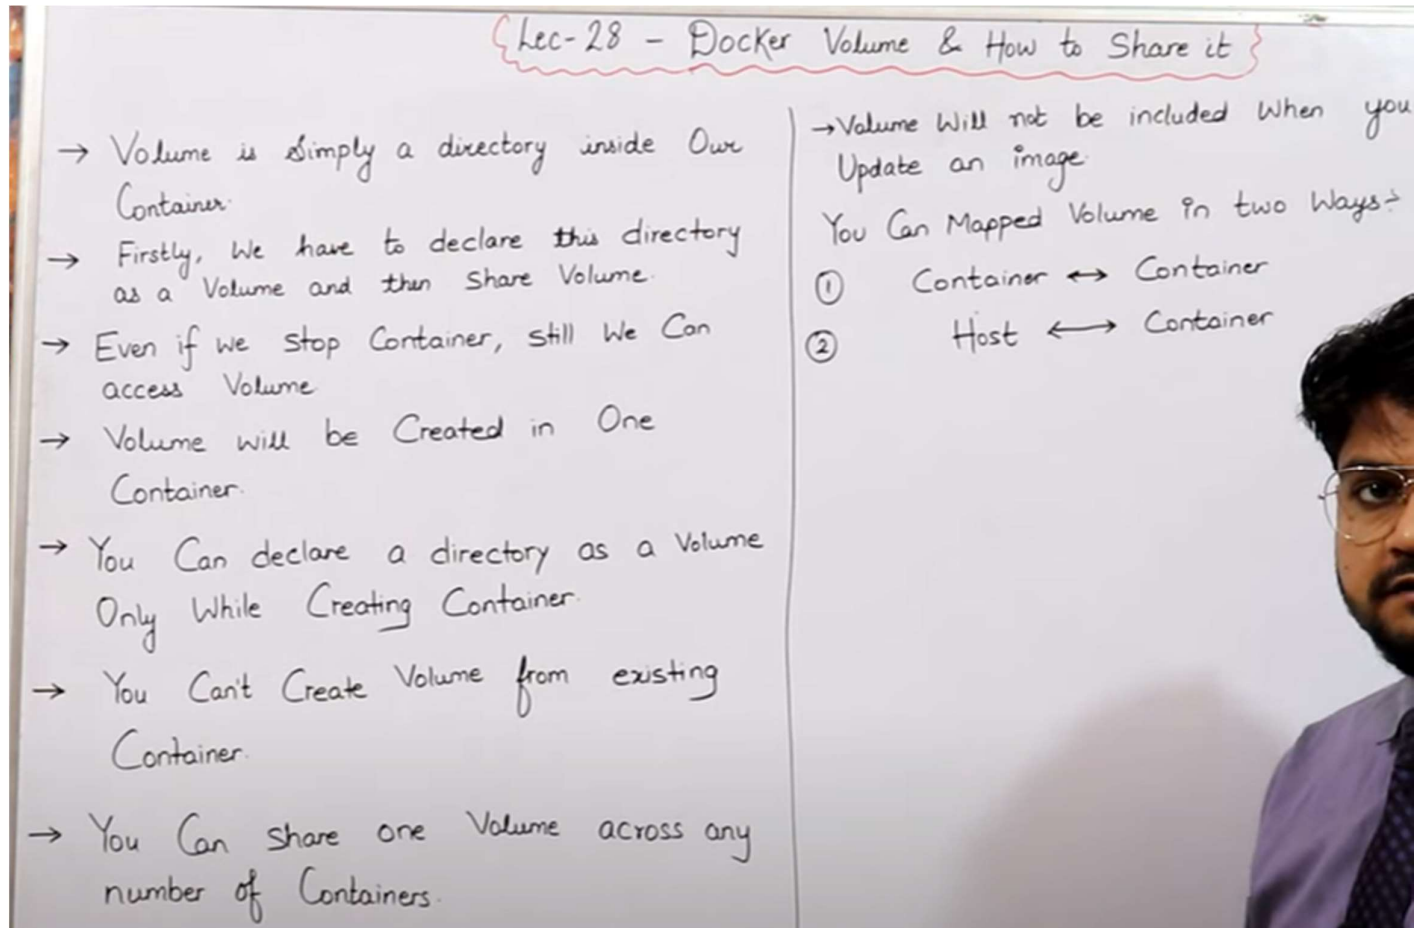 Lec-28 - Docker Volume & How to Share it
→ Volume is Simply a directory inside Our
Container.
→ Firstly, We have to declare this directory
as a Volume and then Share Volume.
→ Even if we stop Container, still We Can
access Volume
→ Volume will be Created in One
Container.
→ You Can declare a directory as a Volume
Only While Creating Container.
→ You Can't Create Volume from existing
Container.
→ You Can share one Volume across any
number of Containers.
→ Volume Will not be included When you
Update an image.
You Can Mapped Volume in two Ways:-
① Container ↔ Container
② Host ↔ Container